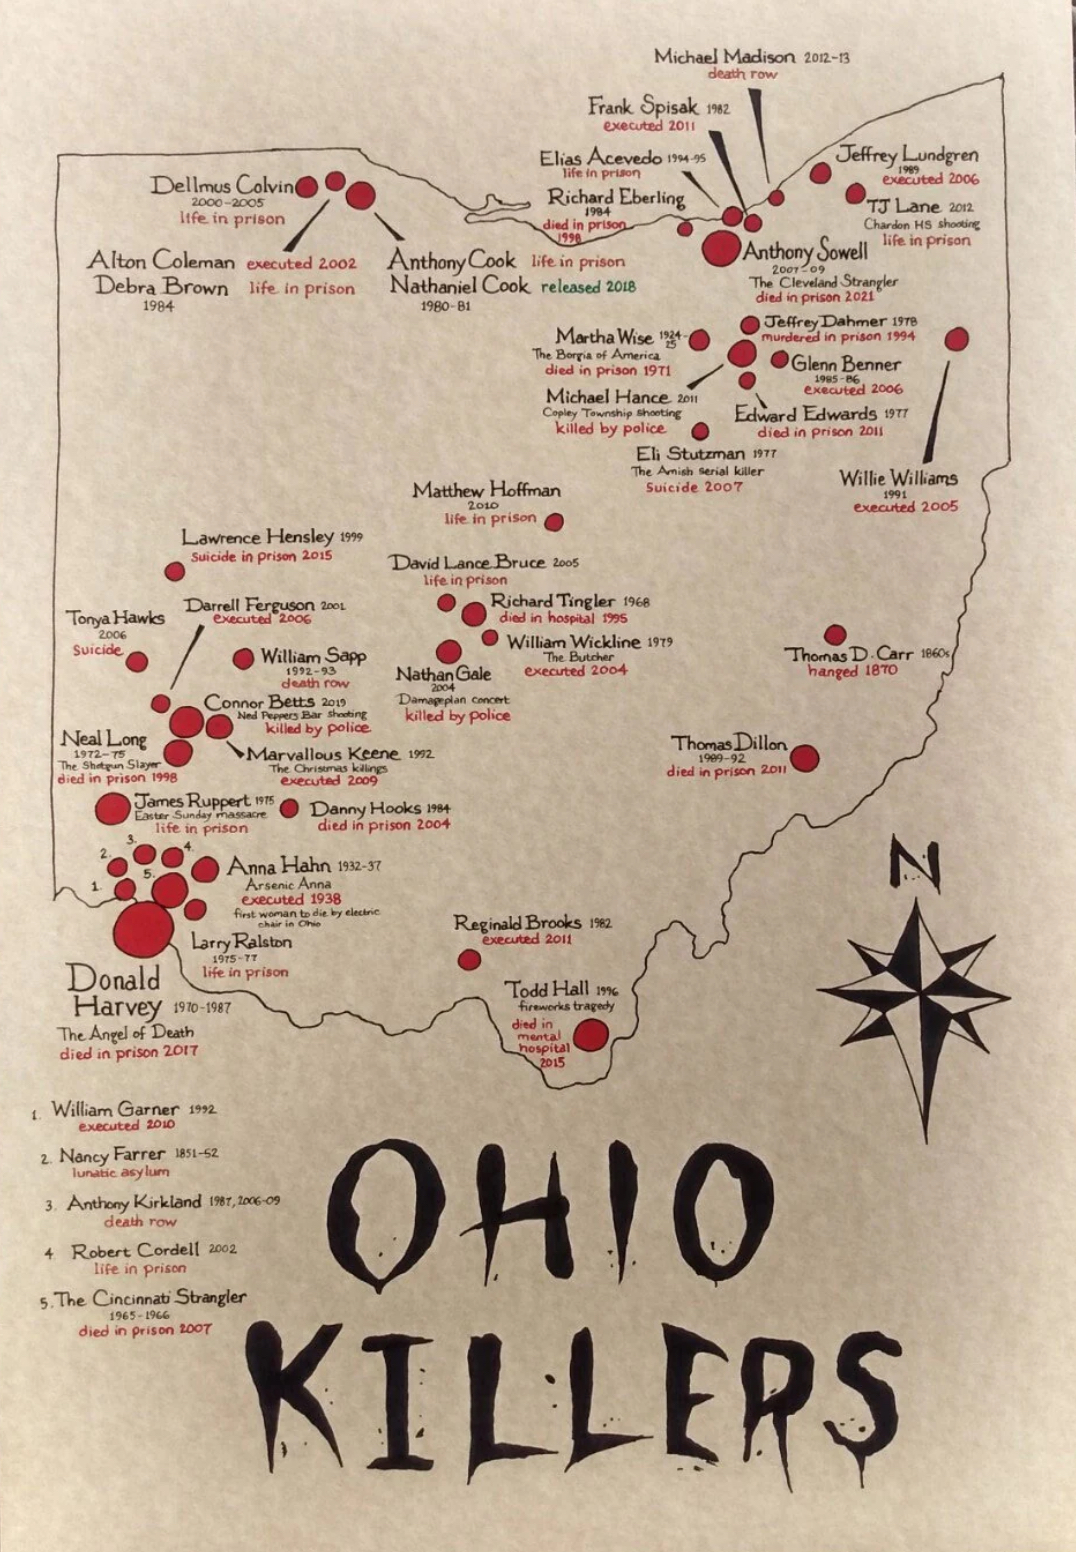 Michael Madison 2012-13
death row
Frank Spisak 1982
executed 2011
Elias Acevedo 1994-95
life in prison
Richard Eberling
1984
died in prison
1998
Jeffrey Lundgren
1989
executed 2006
TJ Lane 2012
Chardon HS shooting
life in prison
Anthony Sowell
2007-09
The Cleveland Strangler
died in prison 2021
Dellmus Colvin
2000-2005
life in prison
Alton Coleman executed 2002
Debra Brown life in prison
1984
Anthony Cook life in prison
Nathaniel Cook released 2018
1980-81
Martha Wise 1924-
25
The Borgia of America
died in prison 1971
Jeffrey Dahmer 1978
murdered in prison 1994
Glenn Benner
1985-86
executed 2006
Michael Hance 2011
Copley Township Shooting
killed by police
Edward Edwards 1977
died in prison 2011
Eli Stutzman 1977
The Amish serial killer
Suicide 2007
Willie Williams
1991
executed 2005
Matthew Hoffman
2010
life in prison
Lawrence Hensley 1999
Suicide in prison 2015
David Lance Bruce 2005
life in prison
Richard Tingler 1968
died in hospital 1995
William Wickline 1979
The Butcher
executed 2004
Nathan Gale
2004
Damageplan concert
killed by police
Tonya Hawks
2006
Suicide
Darrell Ferguson 2001
executed 2006
William Sapp
1992-93
death row
Connor Betts 2019
Ned Peppers Bar Shooting
killed by police
Neal Long
1972-75
The Shotgun Slayer
died in prison 1998
Marvallous Keene 1992
The Christmas killings
executed 2009
Thomas D. Carr 1860s
hanged 1870
Thomas Dillon
1989-92
died in prison 2011
James Ruppert 1975
Easter Sunday massacre
life in prison
Danny Hooks 1984
died in prison 2004
3.
4.
2.
5.
1.
Anna Hahn 1932-37
Arsenic Anna
executed 1938
first woman to die by electric
chair in Ohio
Larry Ralston
1975-77
life in prison
Donald
Harvey 1970-1987
The Angel of Death
died in prison 2017
Reginald Brooks 1982
executed 2011
Todd Hall 1996
fireworks tragedy
died in
mental
hospital
2015
N
1. William Garner 1992
executed 2010
2. Nancy Farrer 1851-52
lunatic asylum
3. Anthony Kirkland 1987, 2006-09
death row
4 Robert Cordell 2002
life in prison
5. The Cincinnati Strangler
1965-1966
died in prison 2007
OHIO
KILLERS